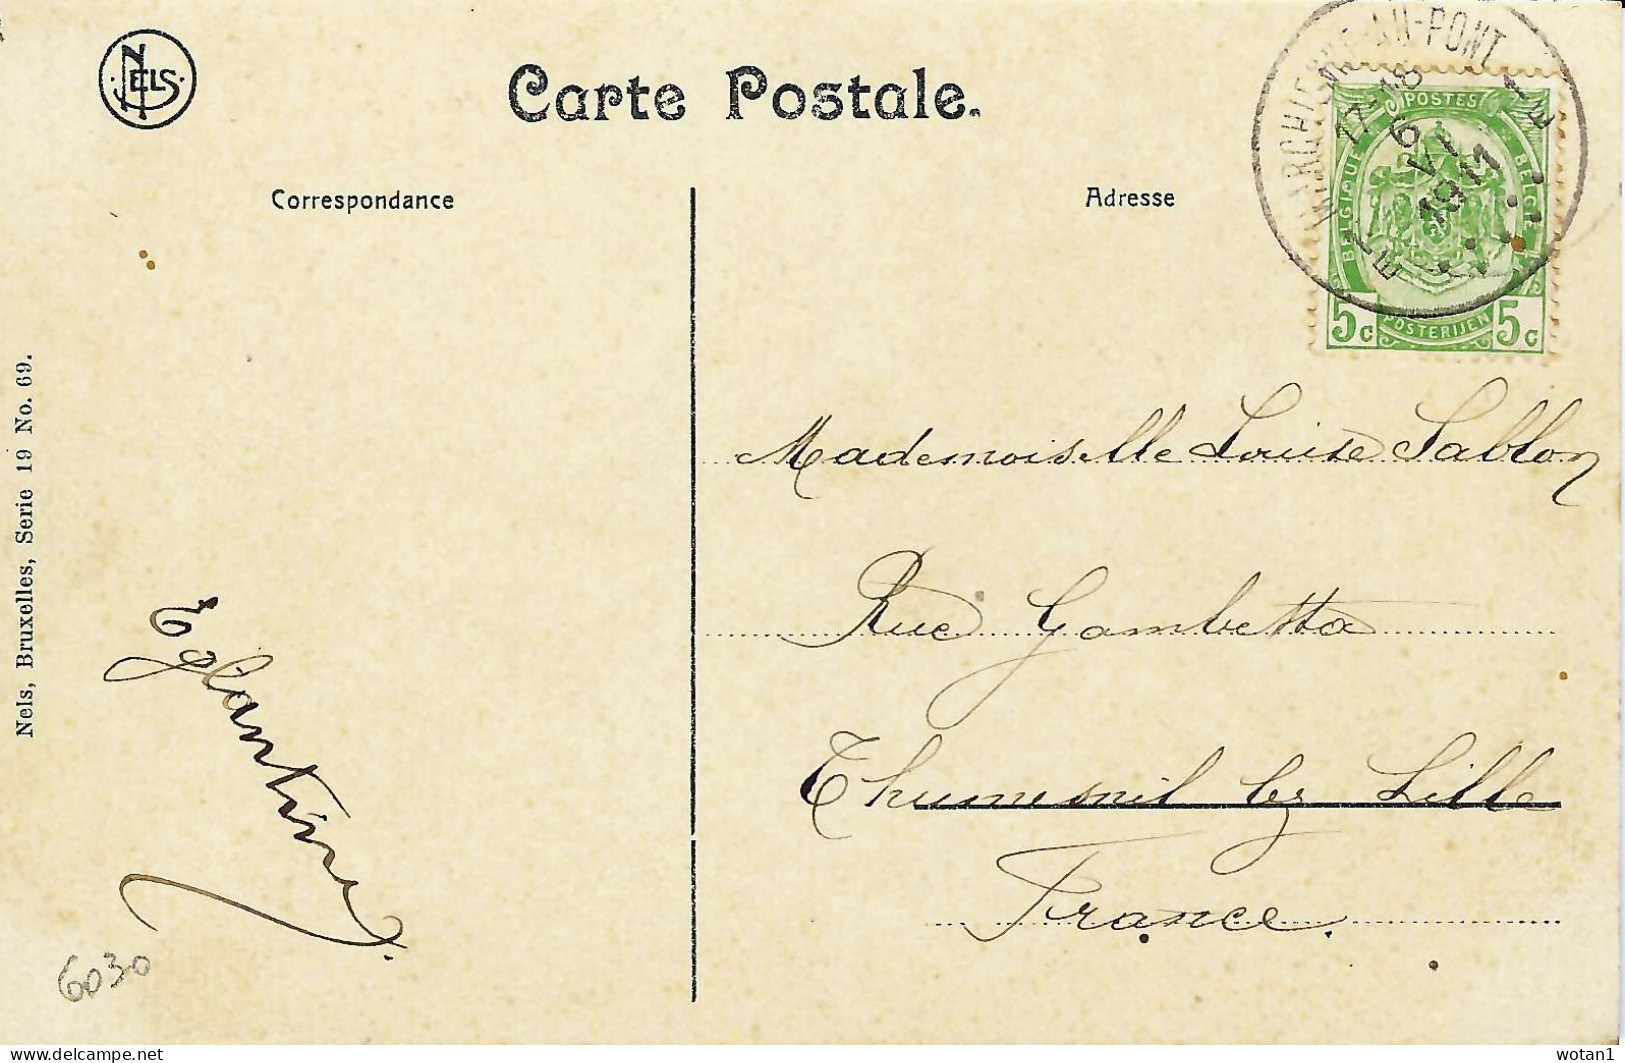 NELS
Carte Postale.
Correspondance
Adresse
MARCHIENNE-AU-PONT
17-18
6
VI
POSTES
BELGIQUE
BELGIË
5c
POSTERIJEN
5c
Mademoiselle Louise Sablon
Rue Gambetta
Thumesnil lez Lille
France.
Eglantine.
6030
Nels, Bruxelles, Serie 19 No. 69.
www.delcampe.net
wotan1